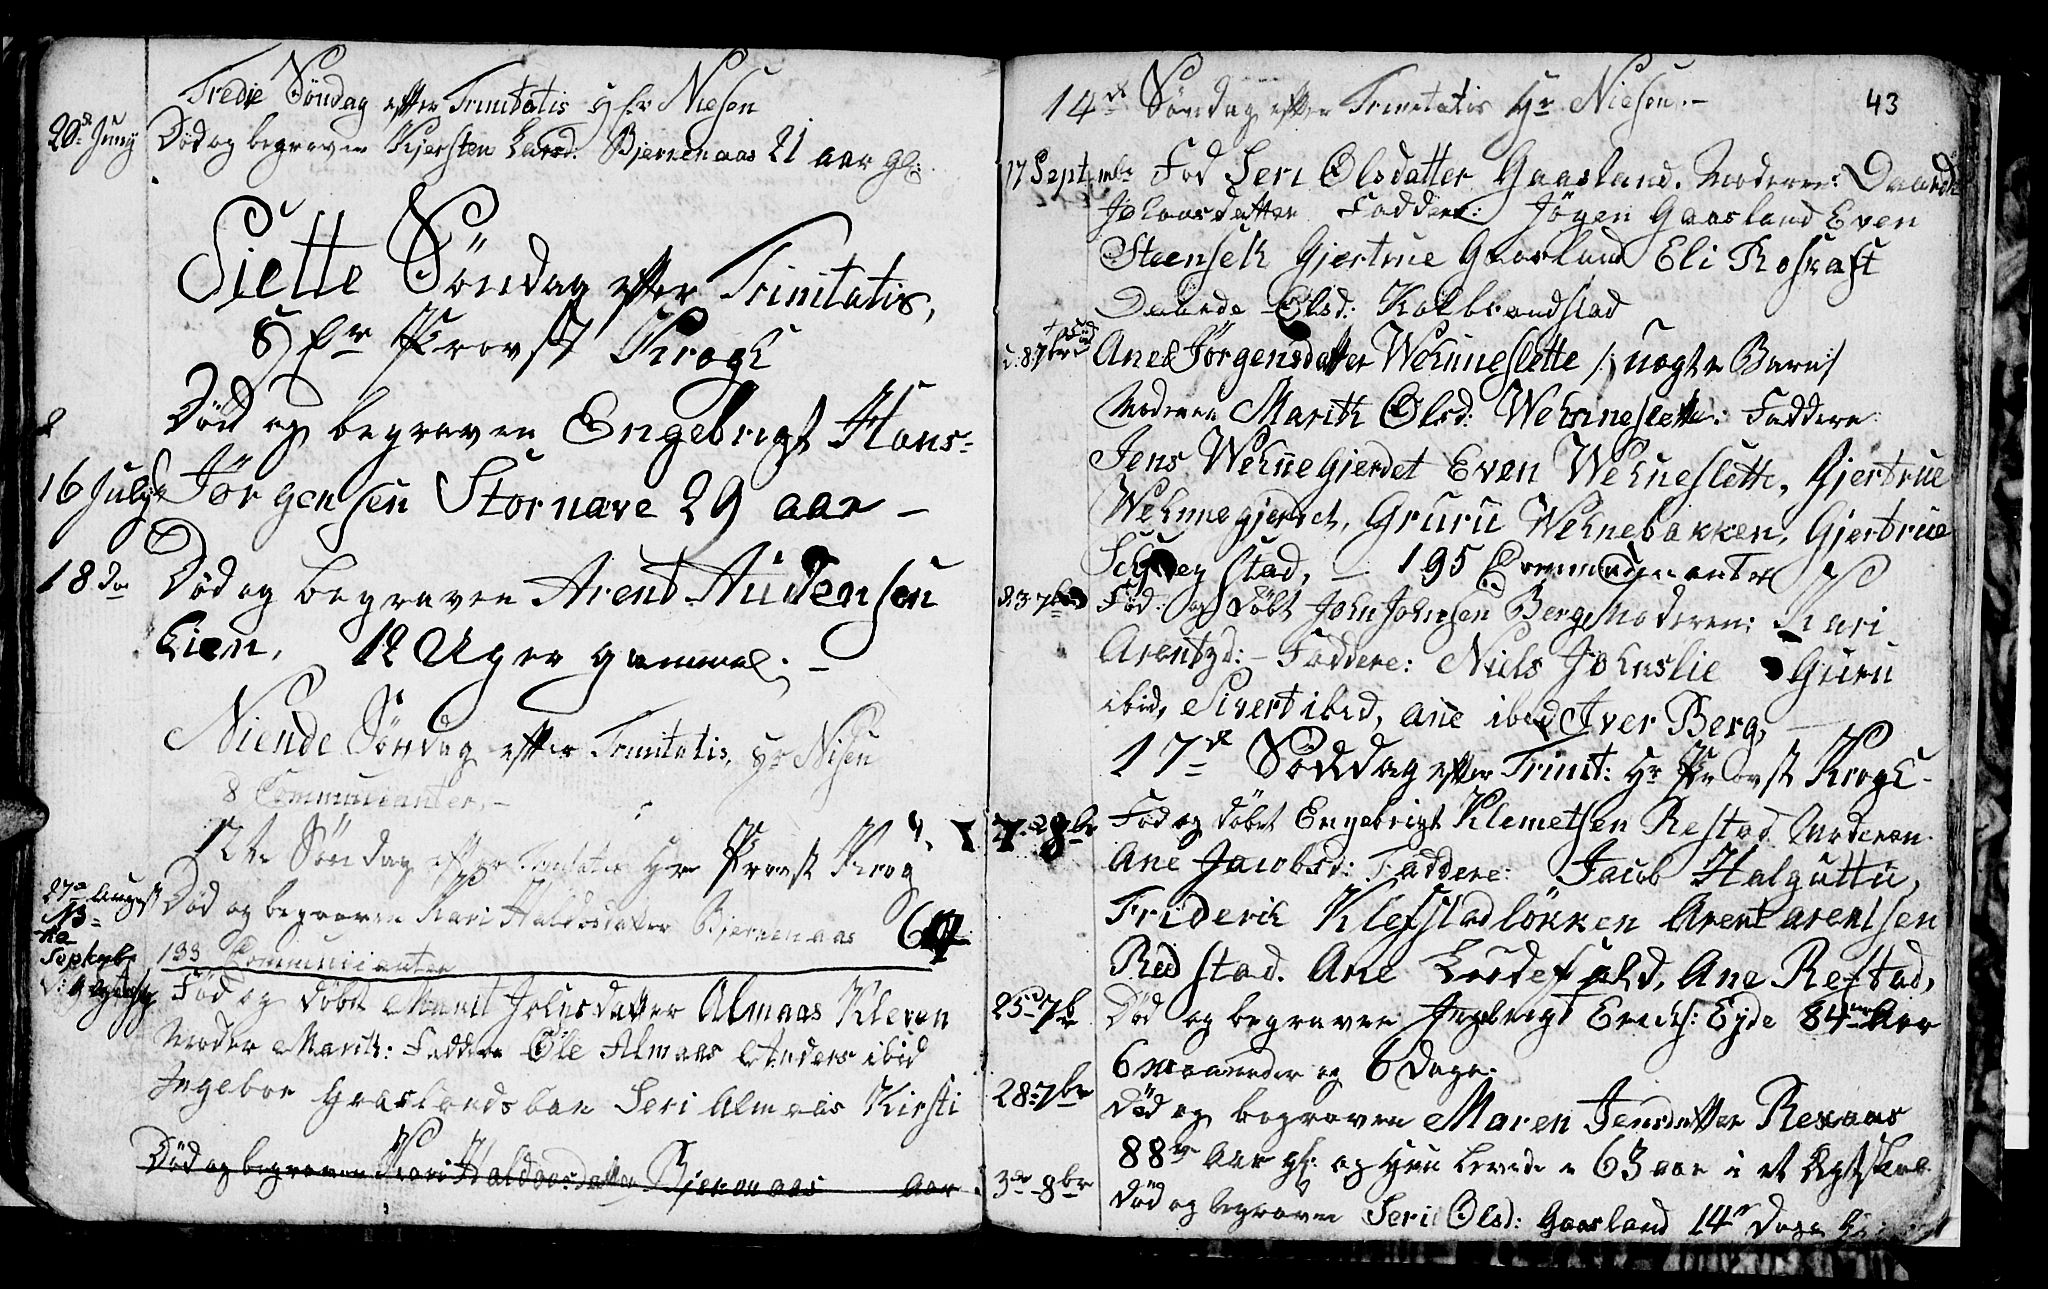 Tredie Söndag efter Trinitatis Hr Niesen
20de Juny Död og begraven Kjersten Larsd: Bjernenaas 21 aar gl:
Siette Söndag efter Trinitatis,
Hr Provst Krogh
Död og begraven Engebrigt Hans-
16 July Jörgensen Stornæve 29 aar –
18 do Död og begraven Arent Audensen
Lien, 12 Uger gammel. –
Niende Söndag efter Trinitatis, Hr Nisen
8 Communicanter. –
12te Söndag efter Trinitatis Hr Provst Krog
27de August Död og begraven Kari Haldosdatter Bjernenaas
133 Communicanter
Föd og döbt Marit Johnsdatter Almaas Kleven
Moder Marit: Faddere Ole Almaas Anders ibid
Ingebor Graslandsbak Seri Almaas Kirsti
Död og begraven Kari Haldoosdatter Bjernenaas Aar
43
14de Söndag efter Trinitatis Hr Niesen. –
17 Septembr Föd Seri Olsdatter Gaasland. Moderen: Daarde
Faddere: Jögen Gaasland Even
Steenselh Gjertrue Gaasland Eli Roskaft
Daarde Olsd: Kolbrandstad
Ane Jörgensdatter Wehneslette /: uægte Barn :/
Moderen Marith Olsd: Wehneslette: Faddere
Jens Wehnegjerdet Even Wehneslette, Gjertrue
Wehnegjerdet, Gruru Wehnebakken, Gjertrue
stad, – 195 Communicanter
Föd og Döbt John Johnsen Berg Moderen: Kari
Arentzd: – Faddere: Niels Johnslie Guru
ibid, Sivert ibid, ane ibid Iver Berg,
17de Söndag efter Trinit: Hr Provst Krogh –
Föd og döbt Engebrigt Klemetsen Restad Moderen
Ane Jacobsd: Faddere: Jacob Halguttu,
Friderich Klefstadlökken Arent arentsen
Redstad. Ane Ane Restad,
25de 7br Död og begraven Ingebrigt Erichs: Eyde 84 Aar
6 maaneder og 6 Dage.
28: 7br Död og begraven Maren Jensdatter Rexaas
88 Aar gl: og Hun Levede 63 aar i et Egteskab
3de 8br Död og begraven Seri Olsd: Gaasland 14 Dage